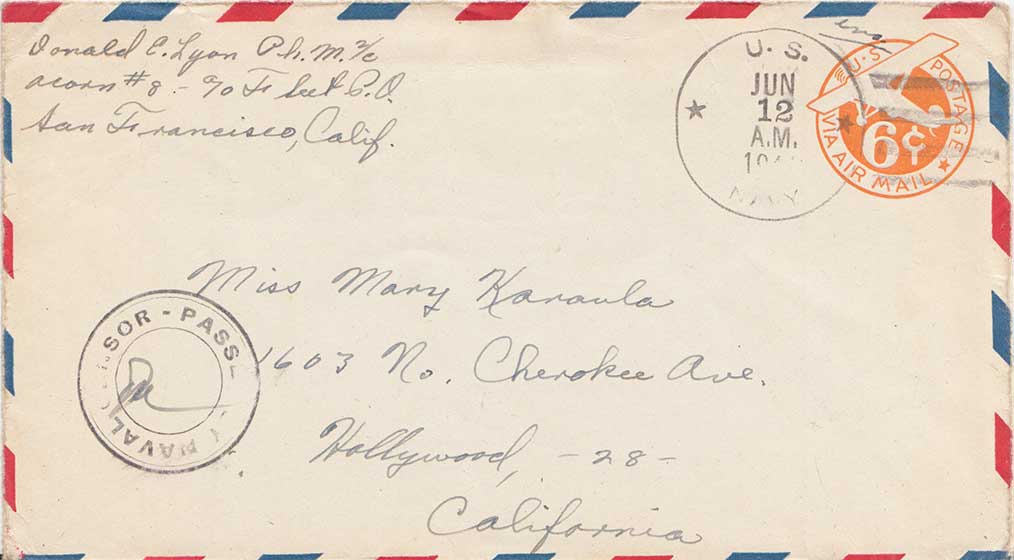 Donald E. Lyon Ph. M. 2/c
acorn #8 - % Fleet P.O.
San Francisco, Calif.
U. S.
JUN
12
A.M.
NAVY
U.S. POSTAGE
6¢
VIA AIR MAIL
Miss Mary Karaula
1603 No. Cherokee Ave.
Hollywood, -28-
California
SOR - PASS
NAVAL